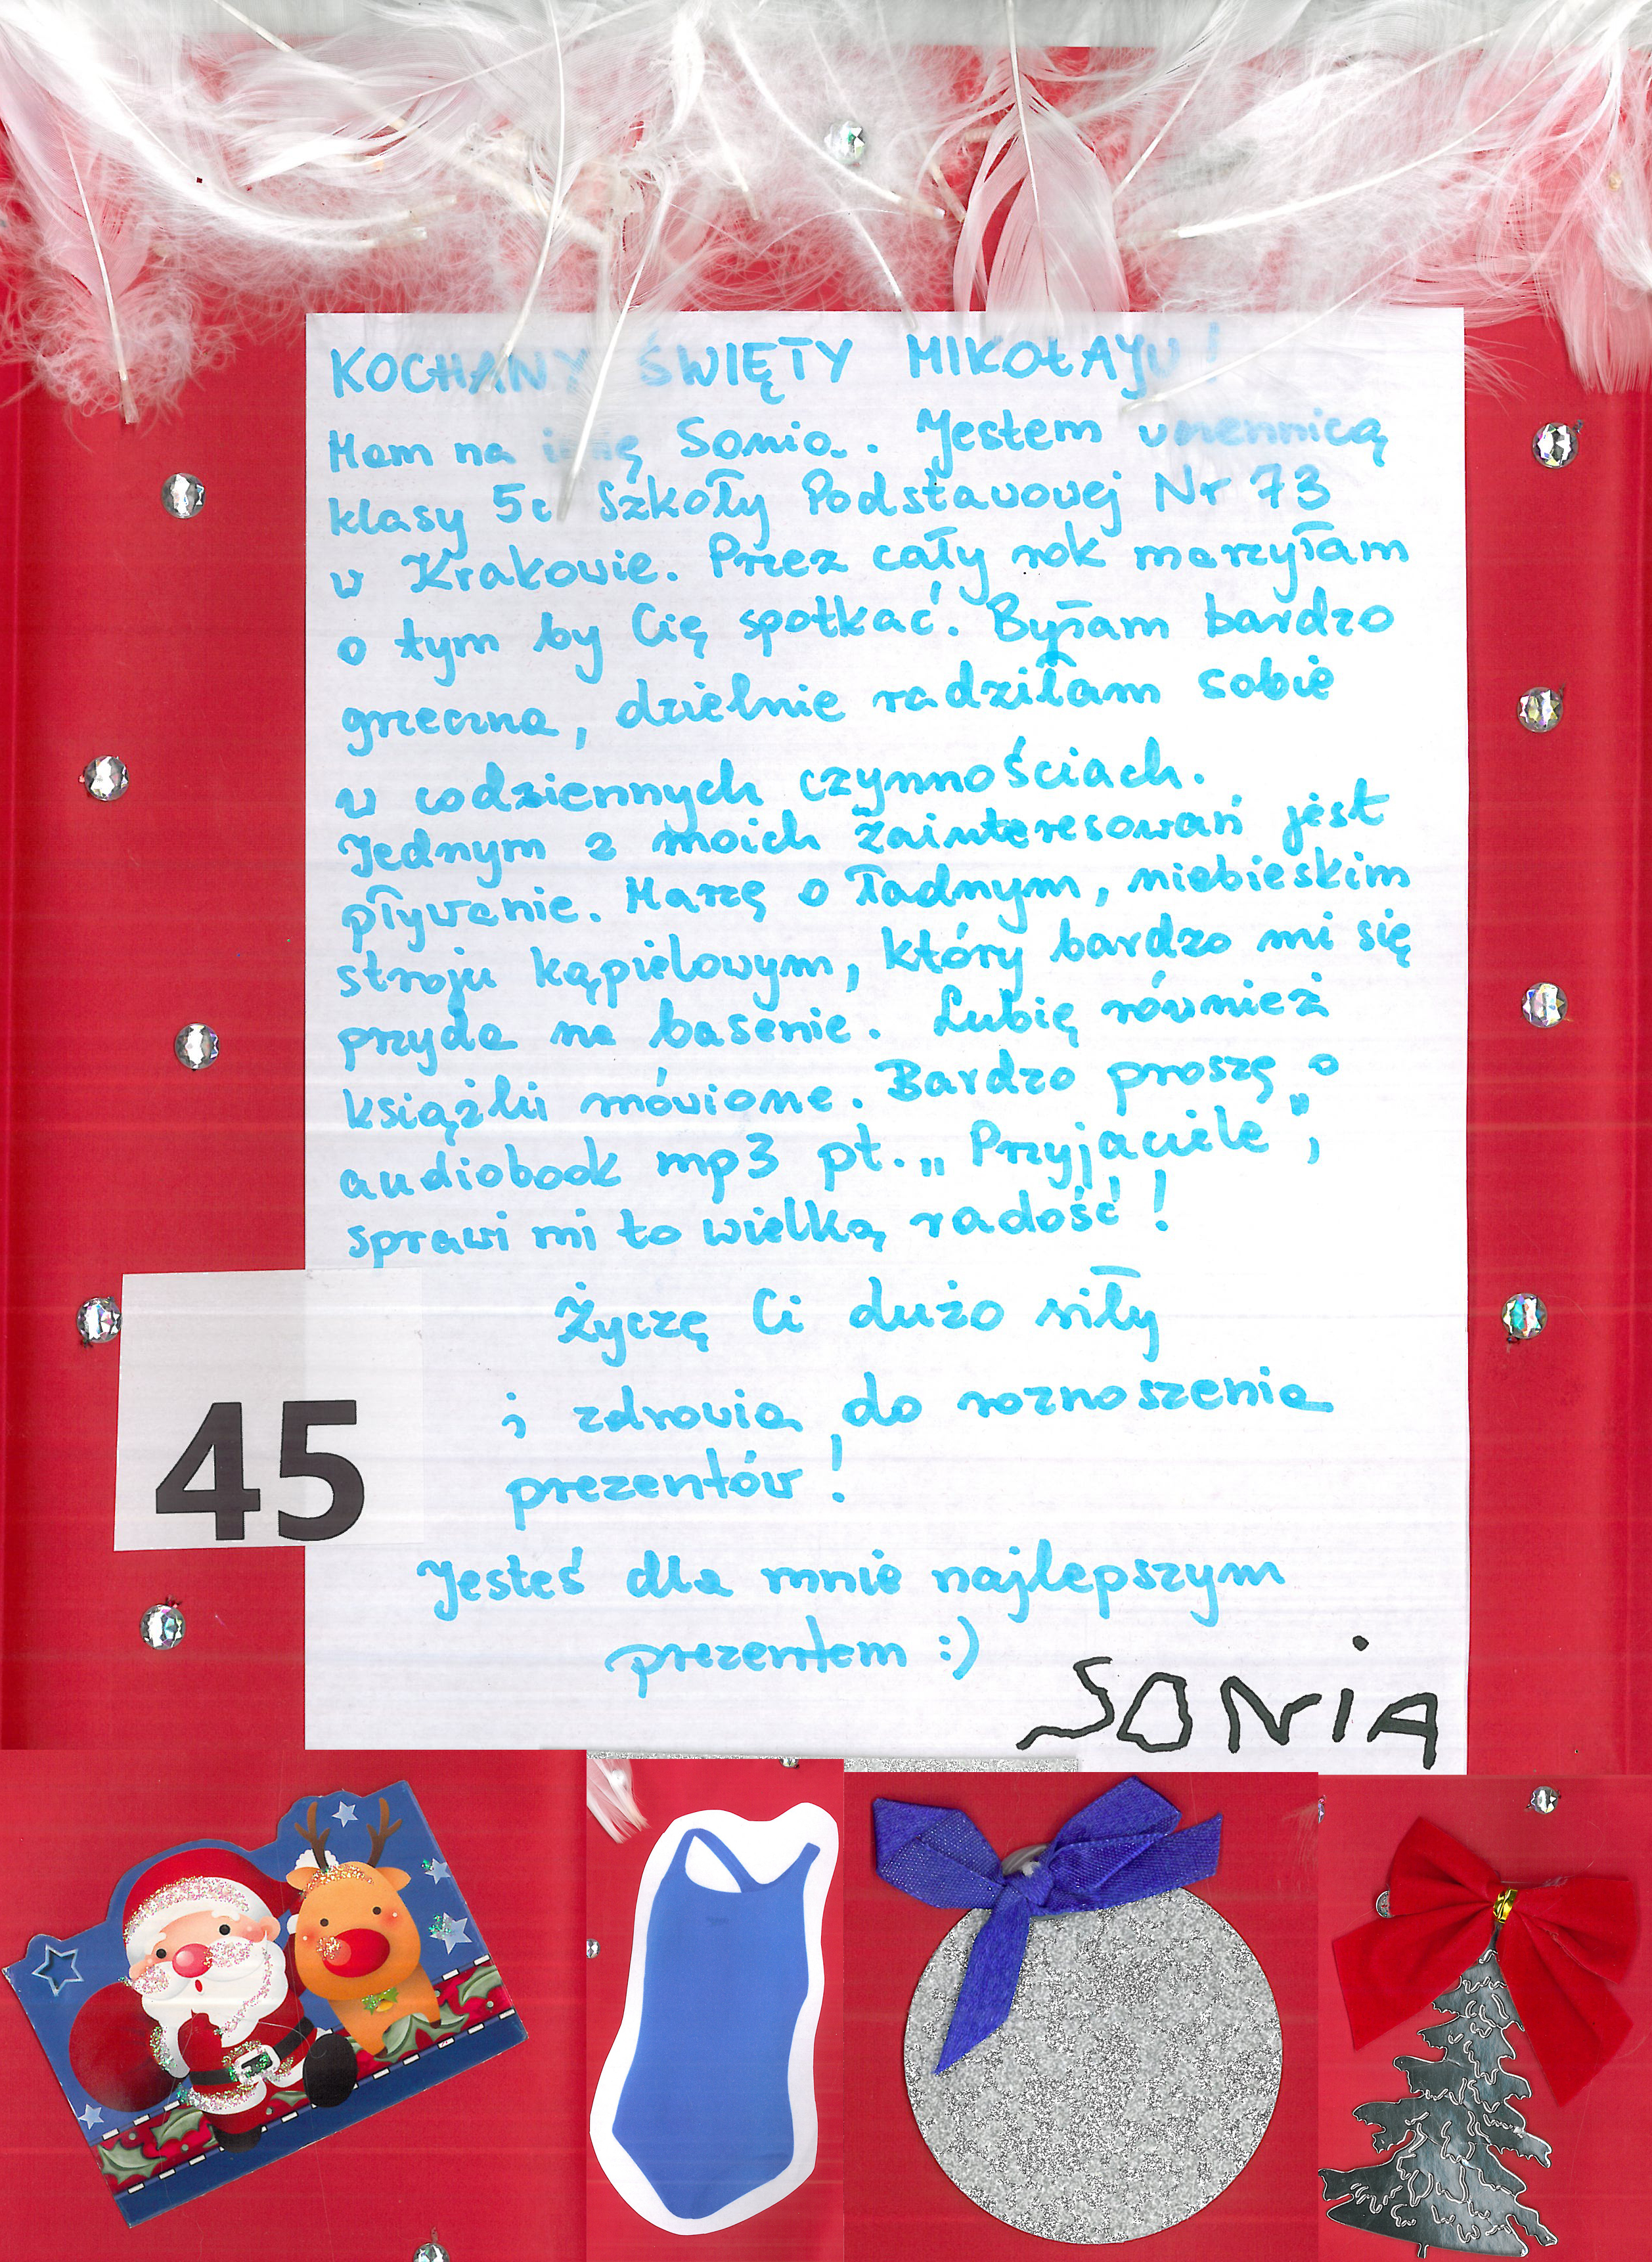 KOCHANY ŚWIĘTY MIKOŁAJU!
Mam na imię Sonia. Jestem uczennicą
klasy 5c Szkoły Podstawowej Nr 73
w Krakowie. Przez cały rok marzyłam
o tym by Cię spotkać. Byłam bardzo
grzeczna, dzielnie radziłam sobie
w codziennych czynnościach.
Jednym z moich zainteresowań jest
pływanie. Marzę o ładnym, niebieskim
stroju kąpielowym, który bardzo mi się
przyda na basenie. Lubię również
książki mówione. Bardzo proszę o
audiobook mp3 pt. „Przyjaciele”,
sprawi mi to wielką radość!
Życzę Ci dużo siły
i zdrowia do roznoszenia
prezentów!
45
Jesteś dla mnie najlepszym
prezentem :)
SONiA